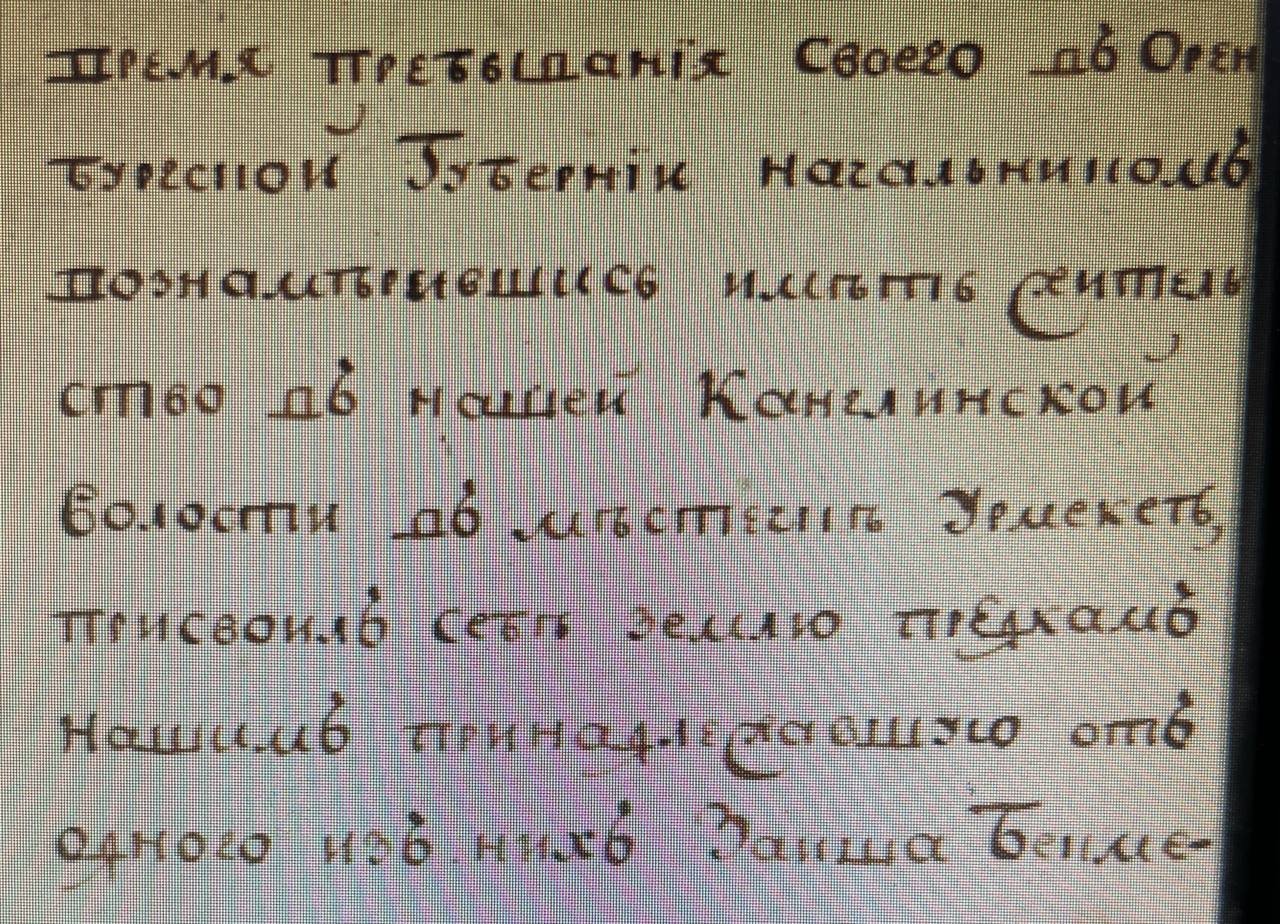 время пребыванія Своего въ Орен
бургской Губерніи начальникомъ
вознамѣрившись имѣть житель
ство въ нашей Канглинской
волости въ мѣстечкѣ Урмекеть,
присвоилъ себѣ землю предкамъ
Нашимъ принадлежавшую отъ
одного изъ нихъ Заиша Бекме-